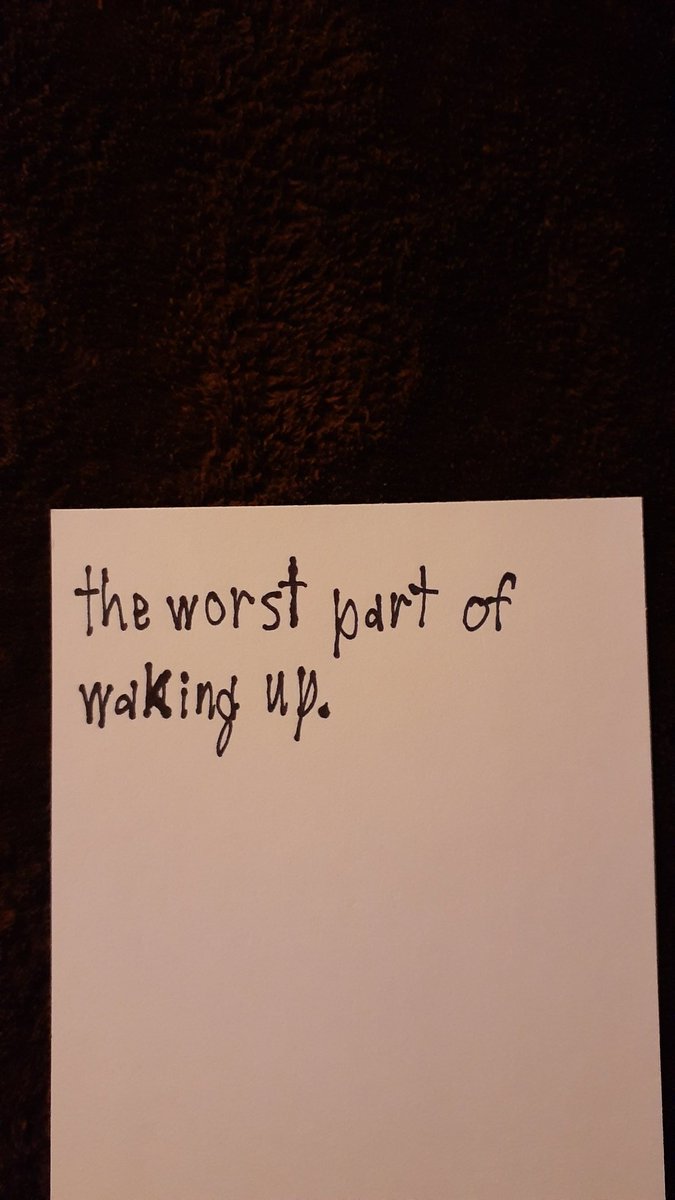 the worst part of
waking up.